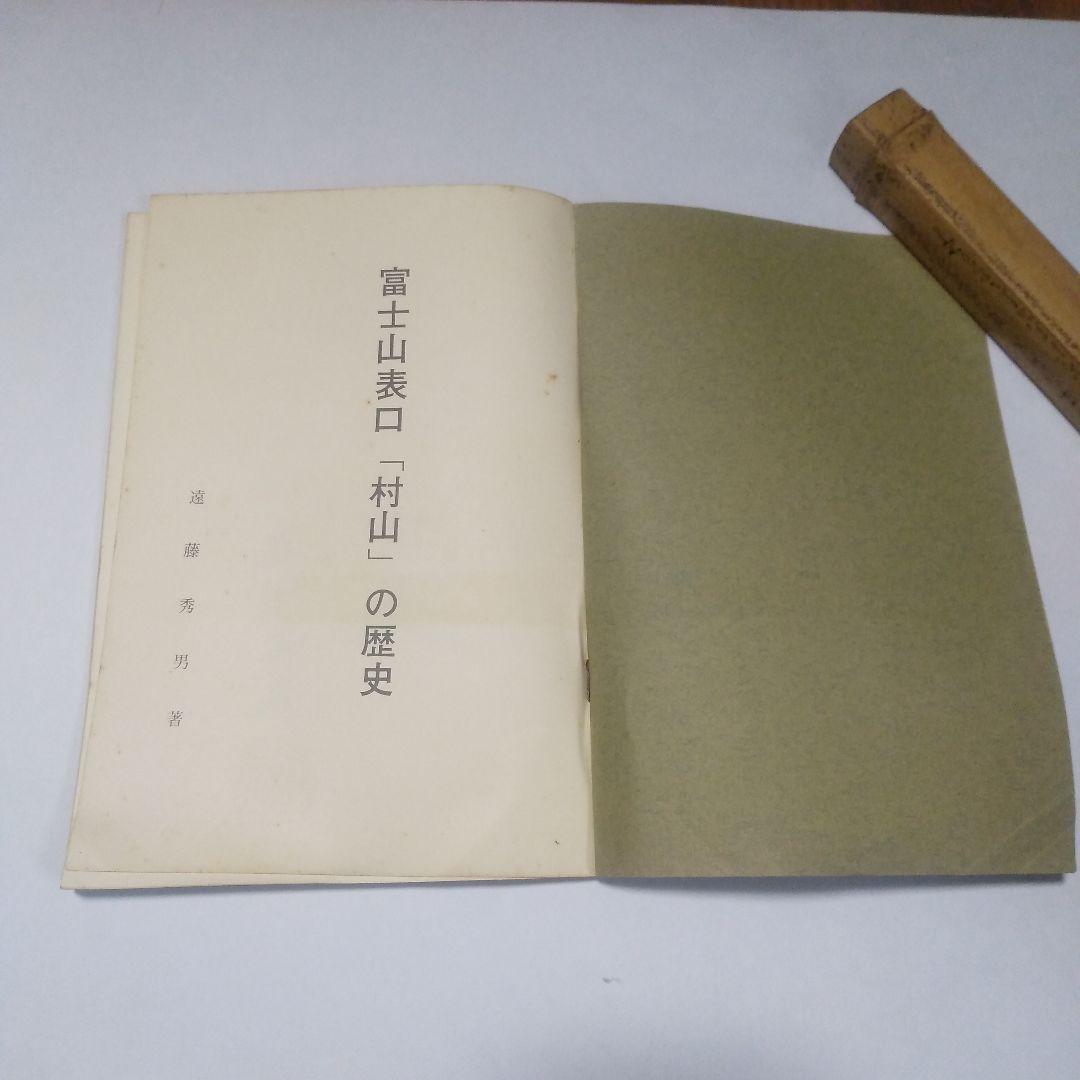 富士山表口「村山」の歴史
遠藤秀男著